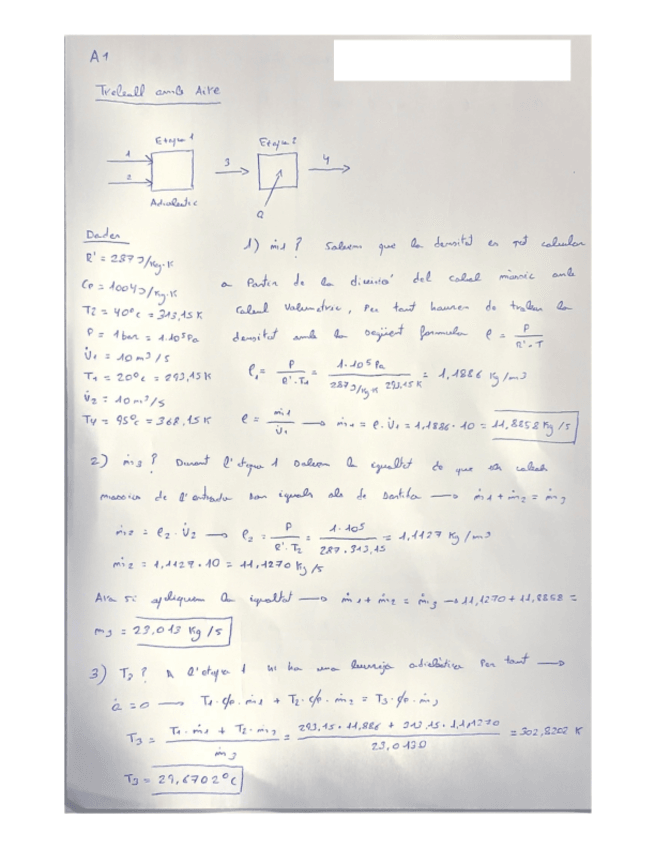 A1
Treball amb Aire
Etapa 1
Etapa 2
1
2
3
4
Adiabatic
Q
Dades
R' = 287 J/Kg·K
Cp = 1004 J/Kg·K
T2 = 40°C = 313,15 K
P = 1 bar = 1·10⁵ Pa
V̇1 = 10 m³/s
T1 = 20°C = 293,15 K
V̇2 = 10 m³/s
T4 = 95°C = 368,15 K
1) ṁ1? Sabem que la densitat es pot calcular
a Partir de la divisió del cabal màssic amb
Cabal Volumetric, Per tant haurem de trobar la
densitat amb la següent formula ρ = P / R'·T
ρ1 = P / R'·T1 = 1·10⁵ Pa / 287 J/Kg K 293,15 K = 1,1886 Kg/m³
ρ = ṁ1 / V̇1 → ṁ1 = ρ·V̇1 = 1,1886·10 = 11,8858 Kg/s
2) ṁ3? Durant l'etapa 1 Sabem la igualtat de que els cabals
massics de l'entrada son iguals als de Sortida → ṁ1 + ṁ2 = ṁ3
ṁ2 = ρ2·V̇2 → ρ2 = P / R'·T2 = 1·10⁵ / 287·313,15 = 1,1127 Kg/m³
ṁ2 = 1,1127·10 = 11,1270 Kg/s
Ara si apliquem la igualtat → ṁ1 + ṁ2 = ṁ3 → 11,1270 + 11,8858 =
m3 = 23,013 Kg/s
3) T3? A l'etapa 1 hi ha una adiabàtica Per tant →
Q̇ = 0 → T1·Cp·ṁ1 + T2·Cp·ṁ2 = T3·Cp·ṁ3
T3 = T1·ṁ1 + T2·ṁ2 / ṁ3 = 293,15·11,886 + 313,15·11,1270 / 23,0130 = 302,8202 K
T3 = 29,6702°C